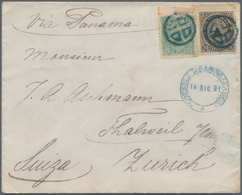 Via Panama
Monsieur
J. A. Aschmann
Thalweil
Zurich
Suiza
14 DIC. 91